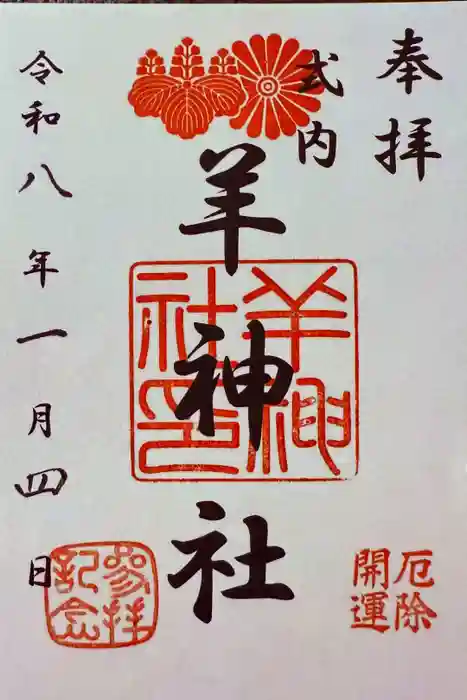 奉拝
式内
羊神社
羊神社印
令和八年一月四日
厄除
開運
参拝
記念